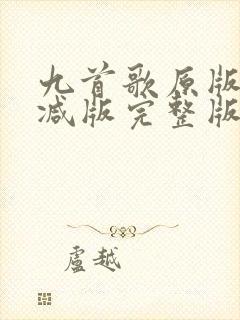 九首歌原版
减版完整版
盧越